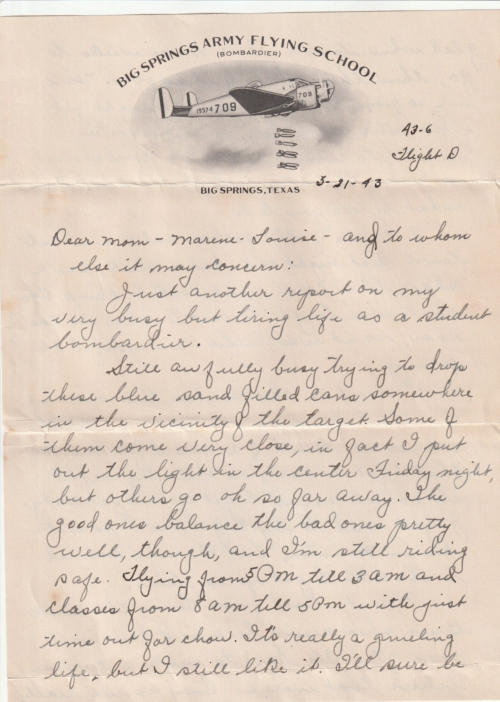 BIG SPRINGS ARMY FLYING SCHOOL
(BOMBARDIER)
15574 709
709
BIG SPRINGS, TEXAS
43-6
Flight D
3-21-43
Dear Mom - Marene - Louise - and to whom
else it may concern:
Just another report on my
very busy but tiring life as a student
bombardier.
Still awfully busy trying to drop
these blue sand filled cans somewhere
in the vicinity of the target. Some of
them come very close, in fact I put
out the light in the center Friday night,
but others go oh so far away. The
good ones balance the bad ones pretty
well, though, and I'm still riding
safe. Flying from 5 PM till 3 am and
classes from 8 am till 5 Pm with just
time out for chow. It's really a grueling
life, but I still like it. I'll sure be